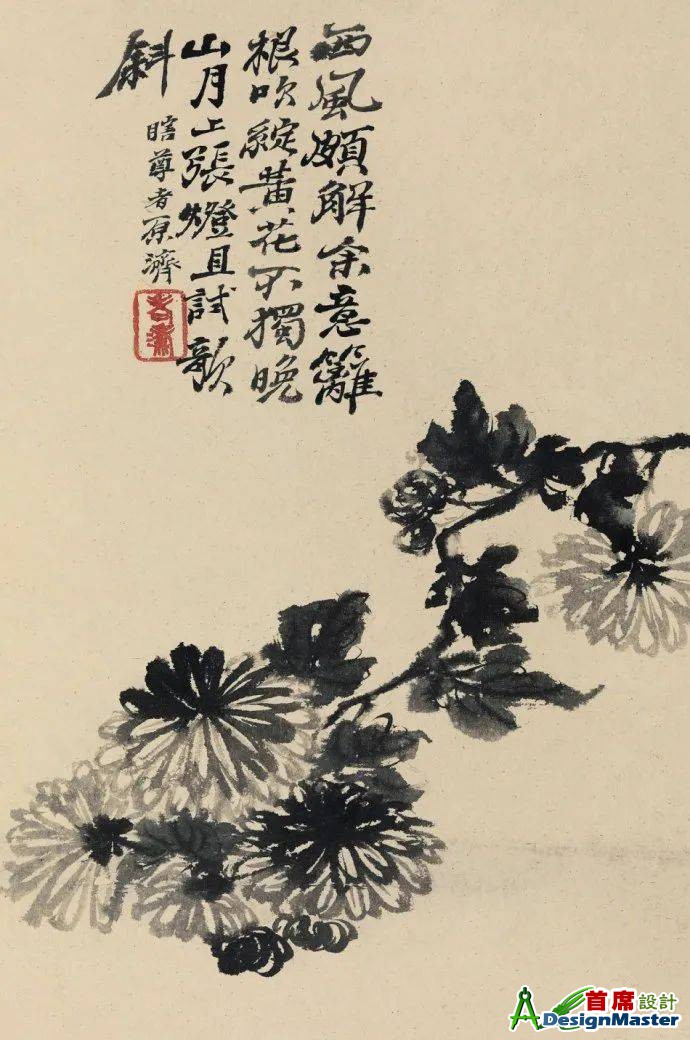 西風頗解余意籬
根吹綻黃花不獨晚
山月上張燈且試歌
斜
瞎尊者原濟
首席設計
DesignMaster